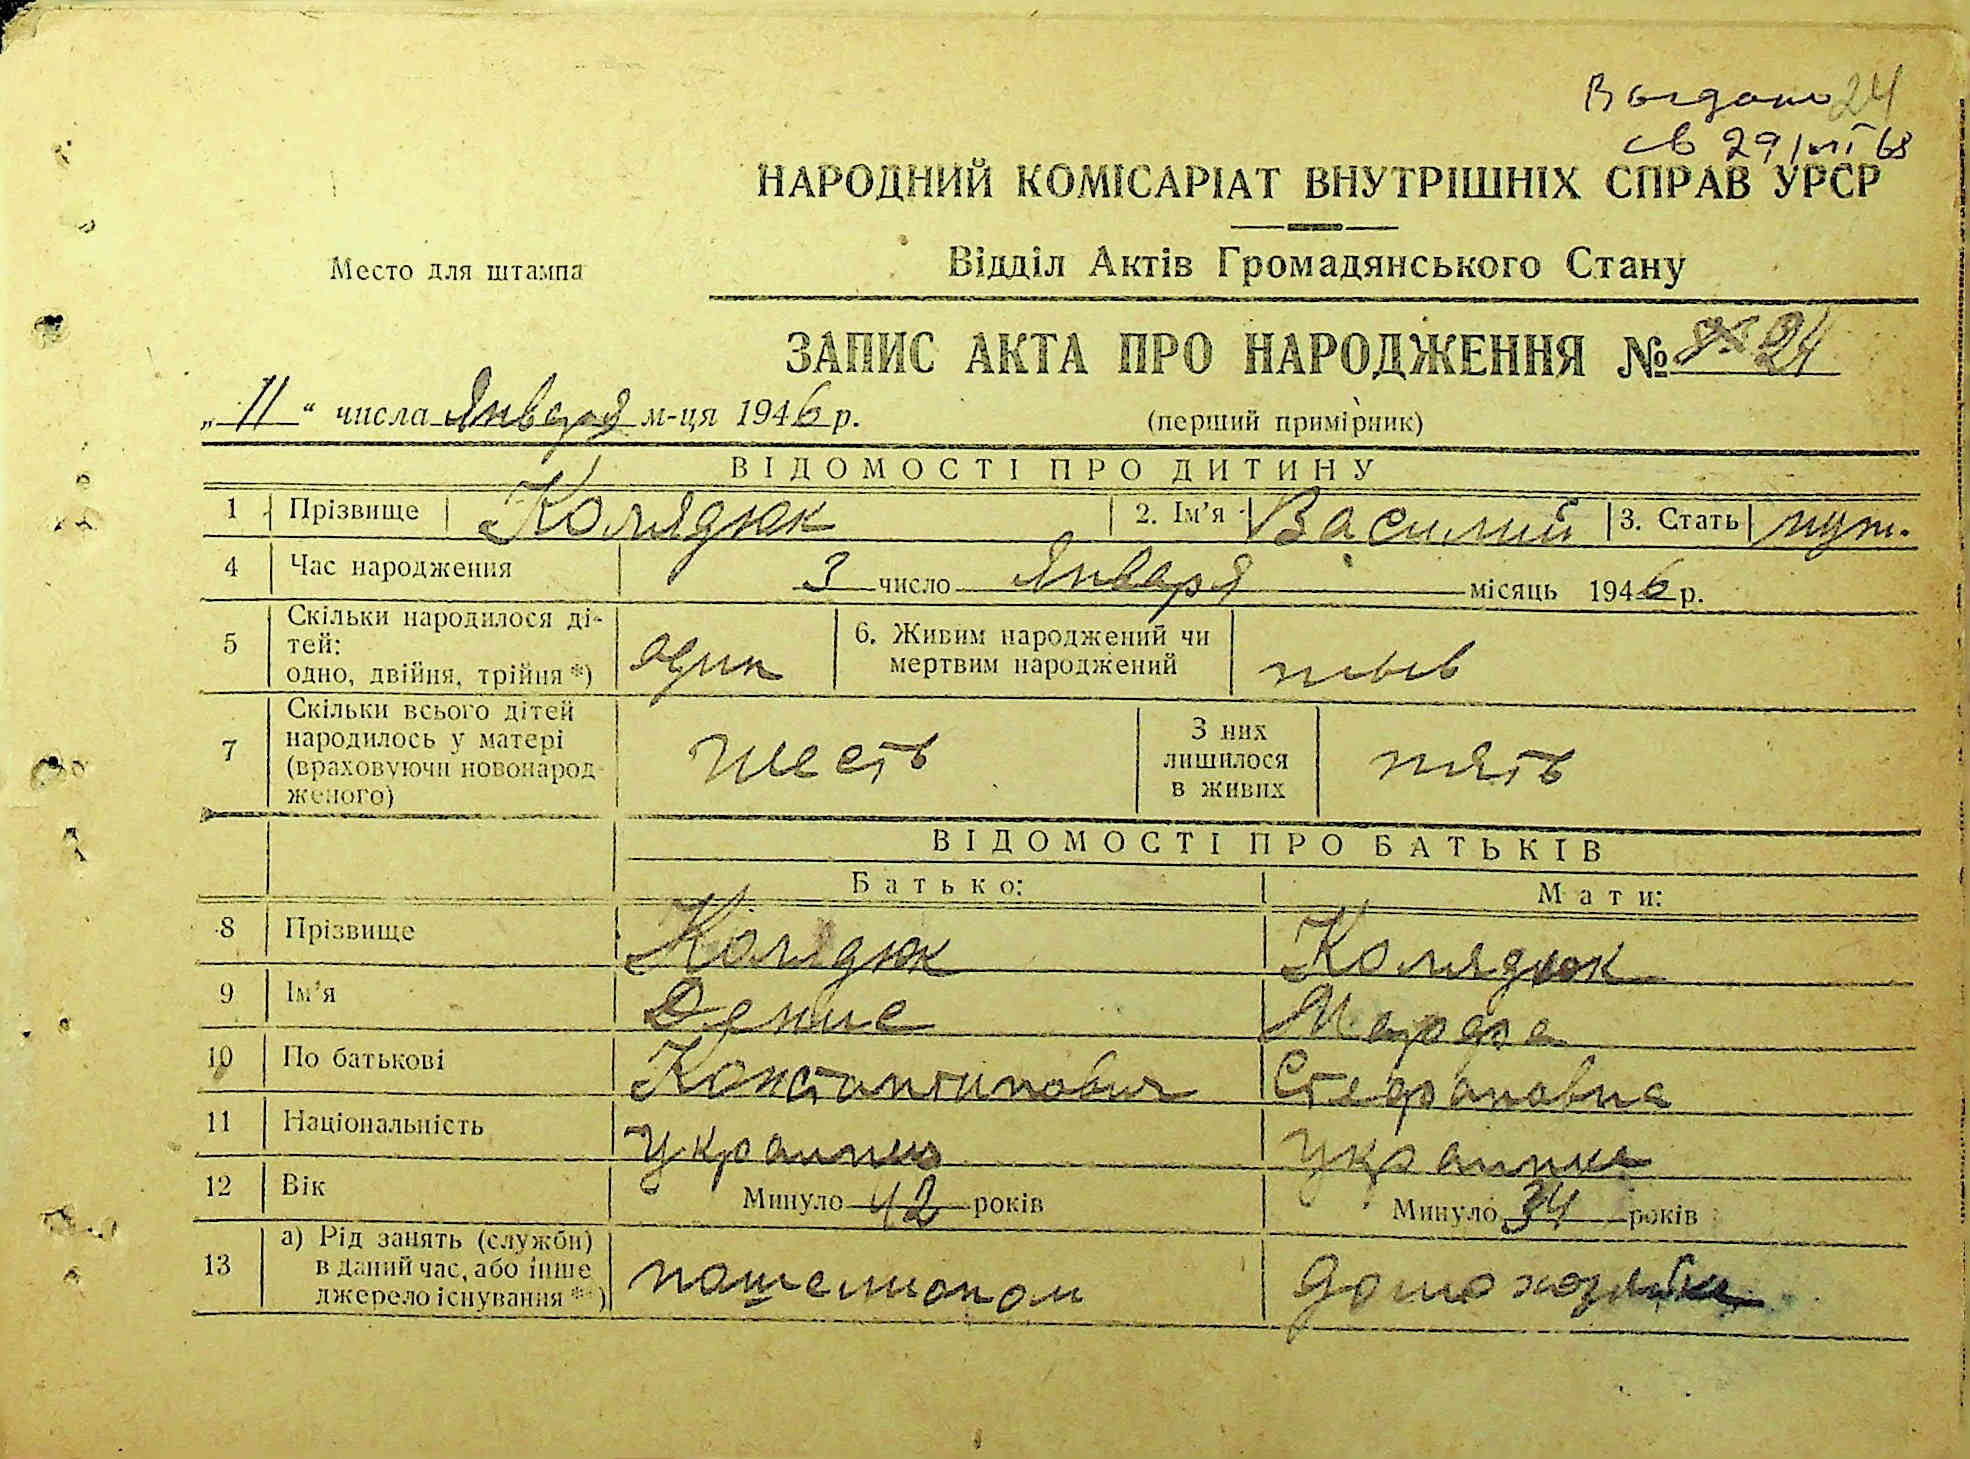 Выдано 24
св 29/VII 68
НАРОДНИЙ КОМІСАРІАТ ВНУТРІШНІХ СПРАВ УРСР
Место для штампа
Відділ Актів Громадянського Стану
ЗАПИС АКТА ПРО НАРОДЖЕННЯ № 24
„11“ числа Января м-ця 1946 р.
(перший примірник)
ВІДОМОСТІ ПРО ДИТИНУ
1 Прізвище Колядюк 2. Ім'я Василий 3. Стать муж.
4 Час народження 3 число Января місяць 1946 р.
5 Скільки народилося ді-
тей:
одно, двійня, трійня *) один
6. Живим народжений чи
мертвим народжений жыв
7 Скільки всього дітей
народилось у матері
(враховуючи новонарод-
женого) шесть
З них
лишилося
в живих пять
ВІДОМОСТІ ПРО БАТЬКІВ
Батько: Мати:
8 Прізвище Колядюк Колядюк
9 Ім'я Денис Марфа
10 По батькові Константинович Стефановна
11 Національність Украинец Украинка
12 Вік Минуло 42 років Минуло 34 років
13 а) Рід занять (служби)
в даний час, або інше
джерело існування **) домохозяйка